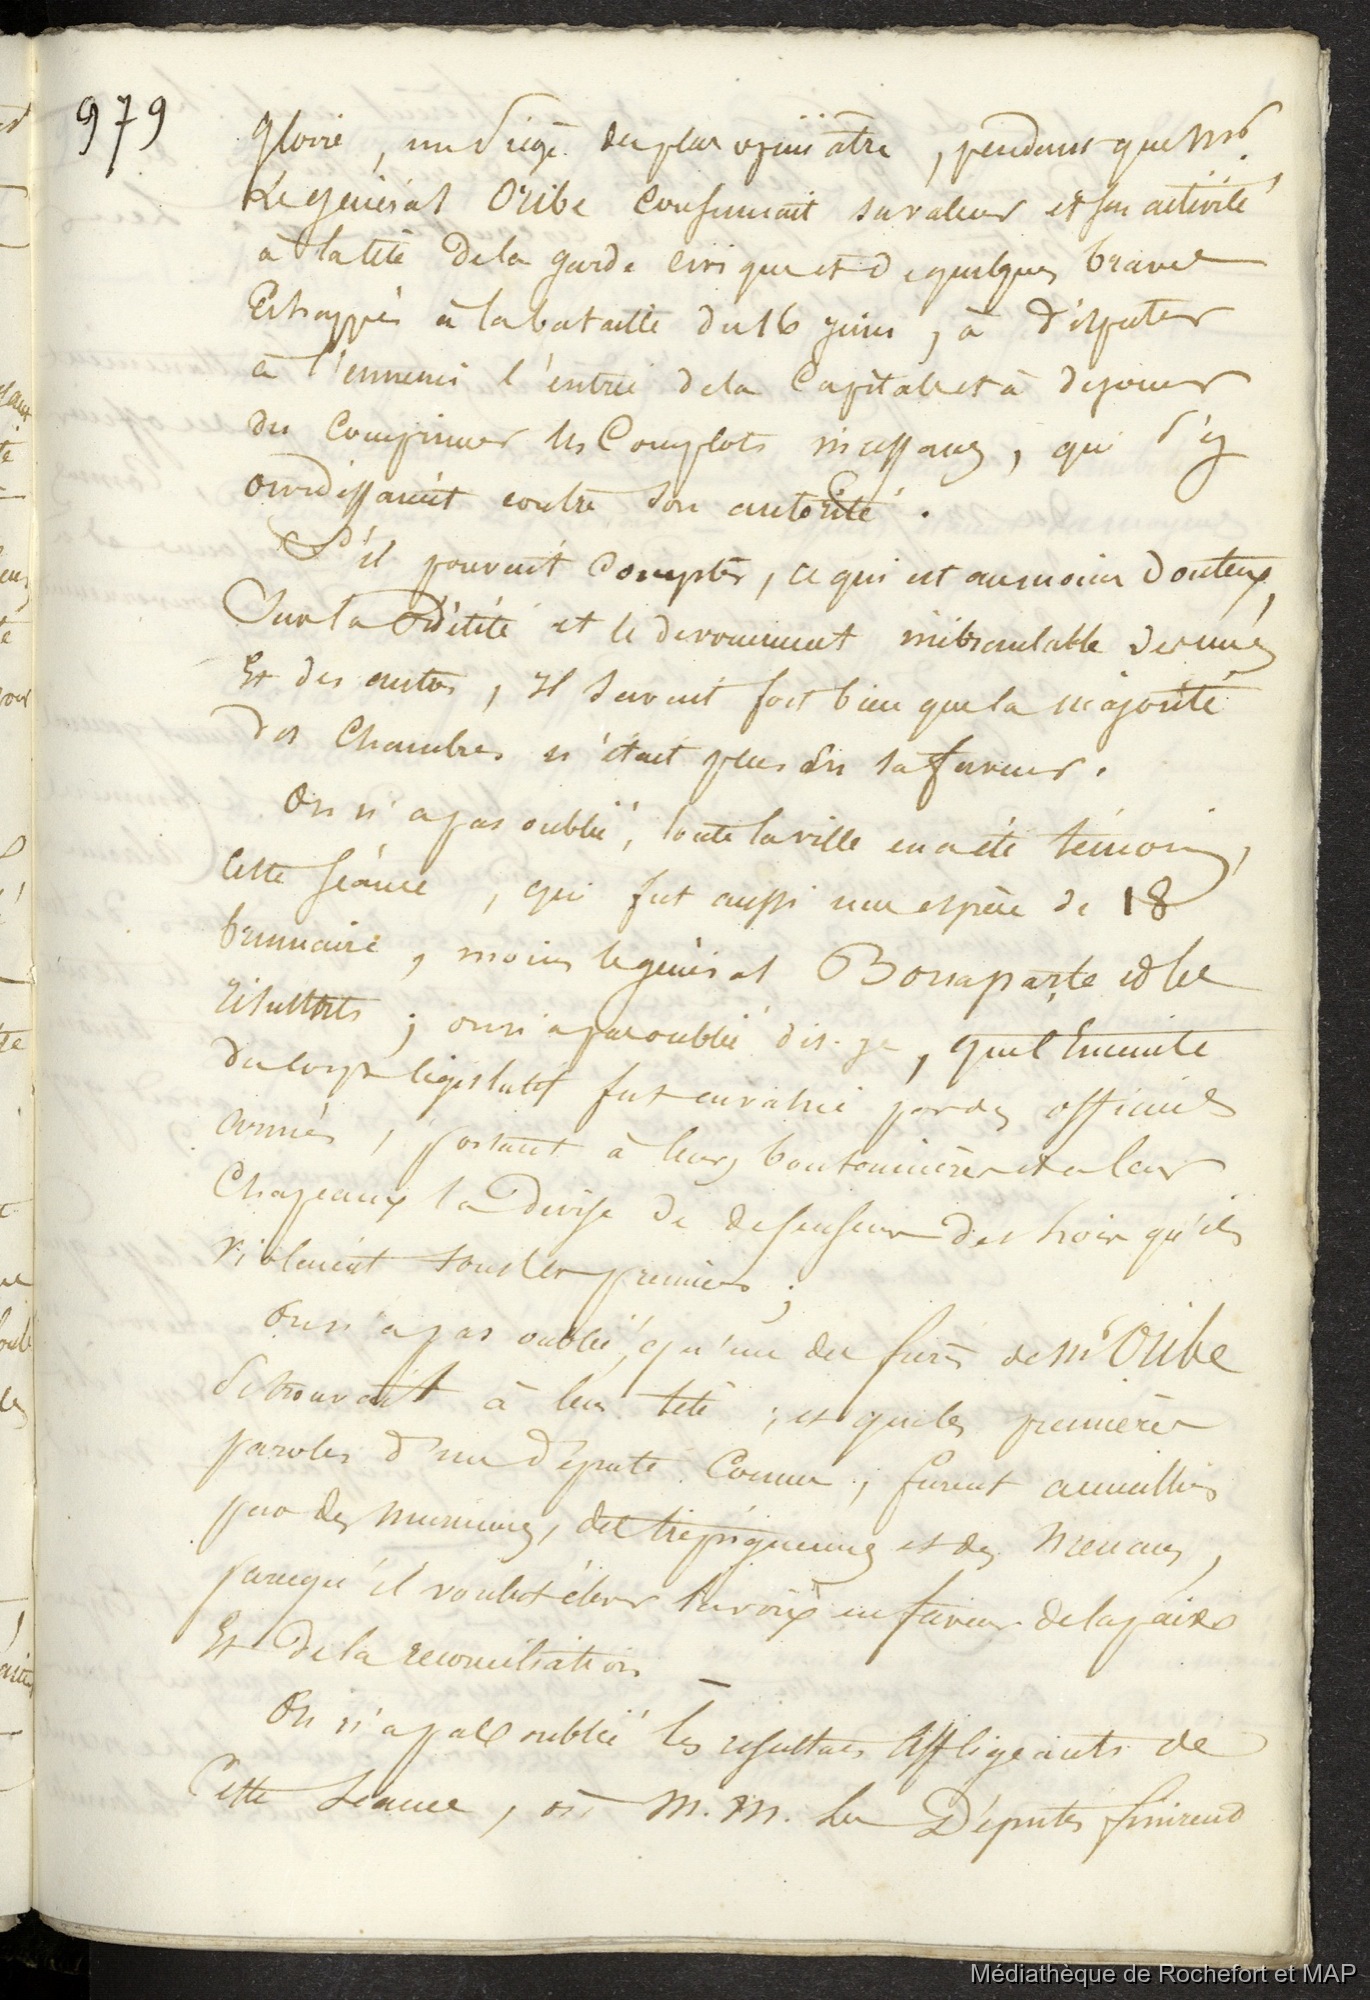 979
Gloire, un siège des plus opiniâtre, pendant que Mr.
Le général Oribe consumait sa valeur et son activité
à la tête de la garde civique et de quelques braves
Echappés à la bataille du 16 juin, à disputer
à l'ennemi l'entrée de la Capitale et à dejouer
ou Comprimer les Complots incessans, qui s'y
ourdissaient contre son autorité.
S'il pouvait Compter, ce qui est au moins Douteux,
Sur la Fidélité et le devouement inébranlable des uns
Et des autres, il savait fort bien que la majorité
des Chambres n'était plus en sa faveur.
On n'a pas oublié, toute la ville en a été témoin,
Cette Séance, qui fut aussi une espèce de 18
brumaire, moins le général Bonaparte et les
résultats; on n'a pas oublié dis-je, que l'Enceinte
du Corps législatif fut envahie par des officiers
armés, portant à leurs boutonnières et a leur
Chapeaux la Devise de defenseur des lois qu'ils
violaient tous les premiers;
On n'a pas oublié, qu'un des frères de Mr Oribe
se trouvait à leur tête; et que les premières
paroles d'un député Connu, furent accueillies
par des murmures, des trépignemens et des menaces,
parce qu'il voulut élever la voix en faveur de la paix
Et de la reconciliation _
On n'a pas oublié les resultats Affligeants de
Cette séance, où M.M. les Députés finirent